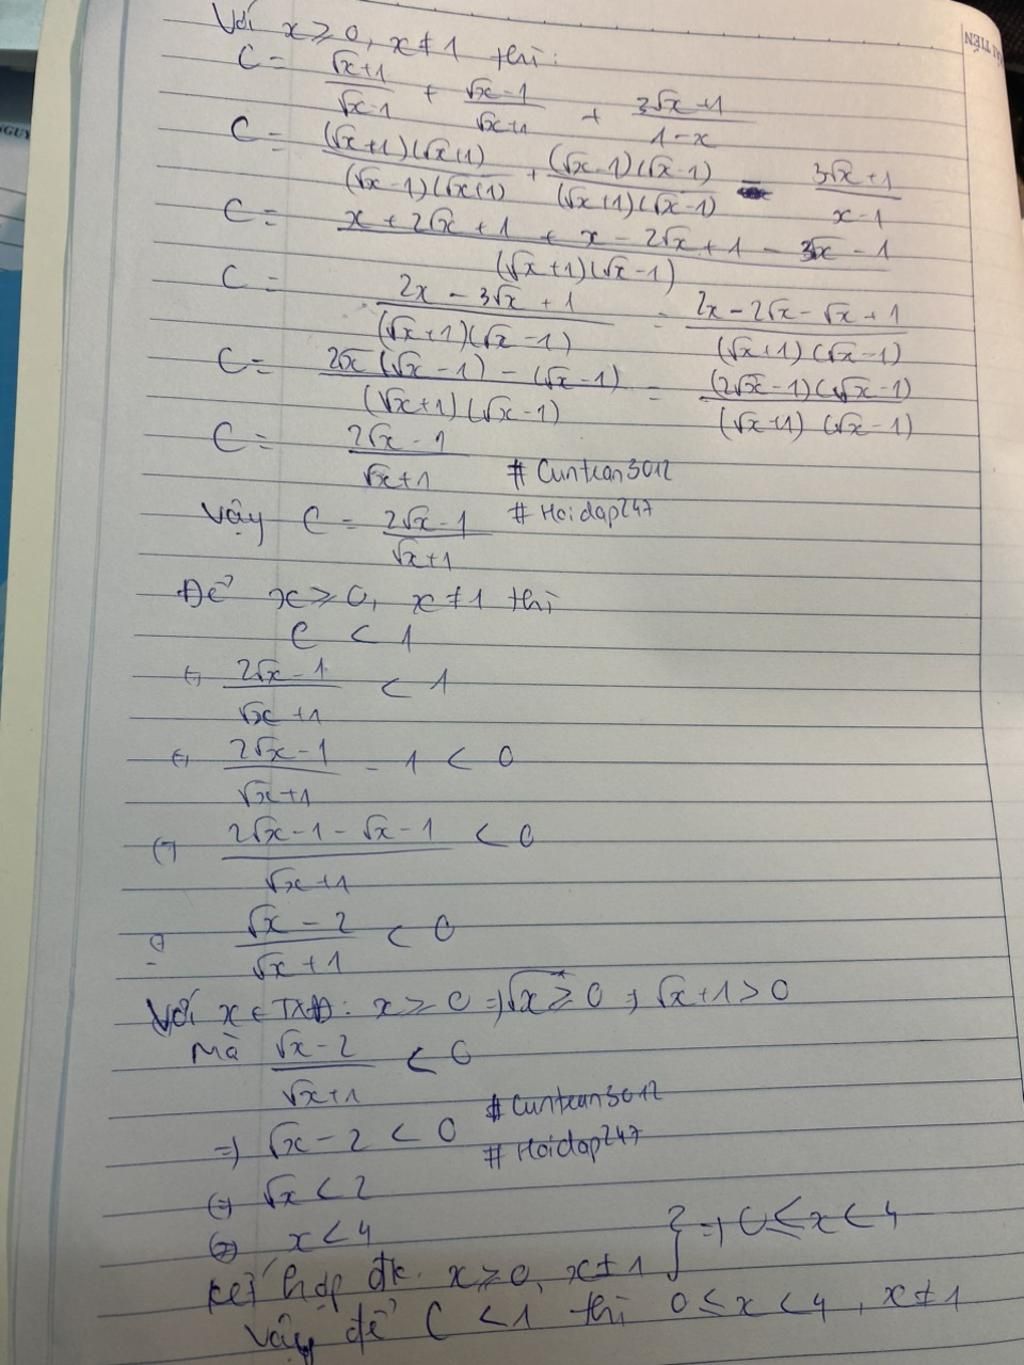 Với x ≥ 0, x ≠ 1 thì:
C = (√x+1)/(√x-1) + (√x-1)/(√x+1) + (3√x+1)/(1-x)
C = (√x+1)(√x+1)/(√x-1)(√x+1) + (√x-1)(√x-1)/(√x+1)(√x-1) - (3√x+1)/(x-1)
C = (x+2√x+1+x-2√x+1-3√x-1)/(√x+1)(√x-1)
C = (2x-3√x+1)/(√x+1)(√x-1) = (2x-2√x-√x+1)/(√x+1)(√x-1)
C = (2√x(√x-1)-(√x-1))/(√x+1)(√x-1) = (2√x-1)(√x-1)/(√x+1)(√x-1)
C = (2√x-1)/(√x+1) # Cuntean3012
Vậy C = (2√x-1)/(√x+1) # Hoidap247
Để x ≥ 0, x ≠ 1 thì
C < 1
⇔ (2√x-1)/(√x+1) < 1
⇔ (2√x-1)/(√x+1) - 1 < 0
⇔ (2√x-1-√x-1)/(√x+1) < 0
⇔ (√x-2)/(√x+1) < 0
Với x ∈ TXĐ: x ≥ 0 ⇒ √x ≥ 0 ⇒ √x+1 > 0
Mà (√x-2)/(√x+1) < 0
⇒ √x-2 < 0 # Cuntean3012
# Hoidap247
⇔ √x < 2
⇔ x < 4
Kết hợp đk: x ≥ 0, x ≠ 1 } ⇒ 0 ≤ x < 4
Vậy để C < 1 thì 0 ≤ x < 4, x ≠ 1